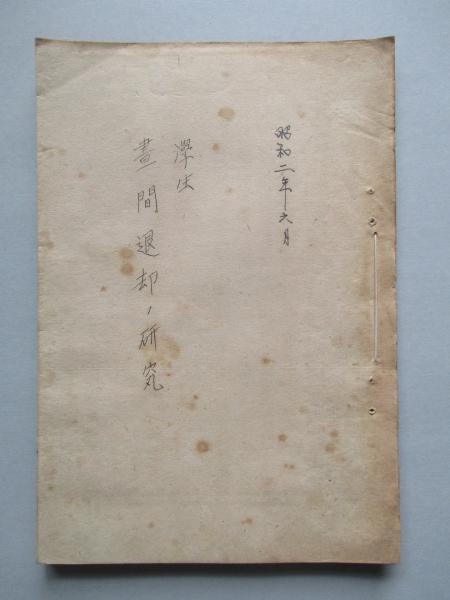 昭和二年六月
學生
晝間退却ノ研究